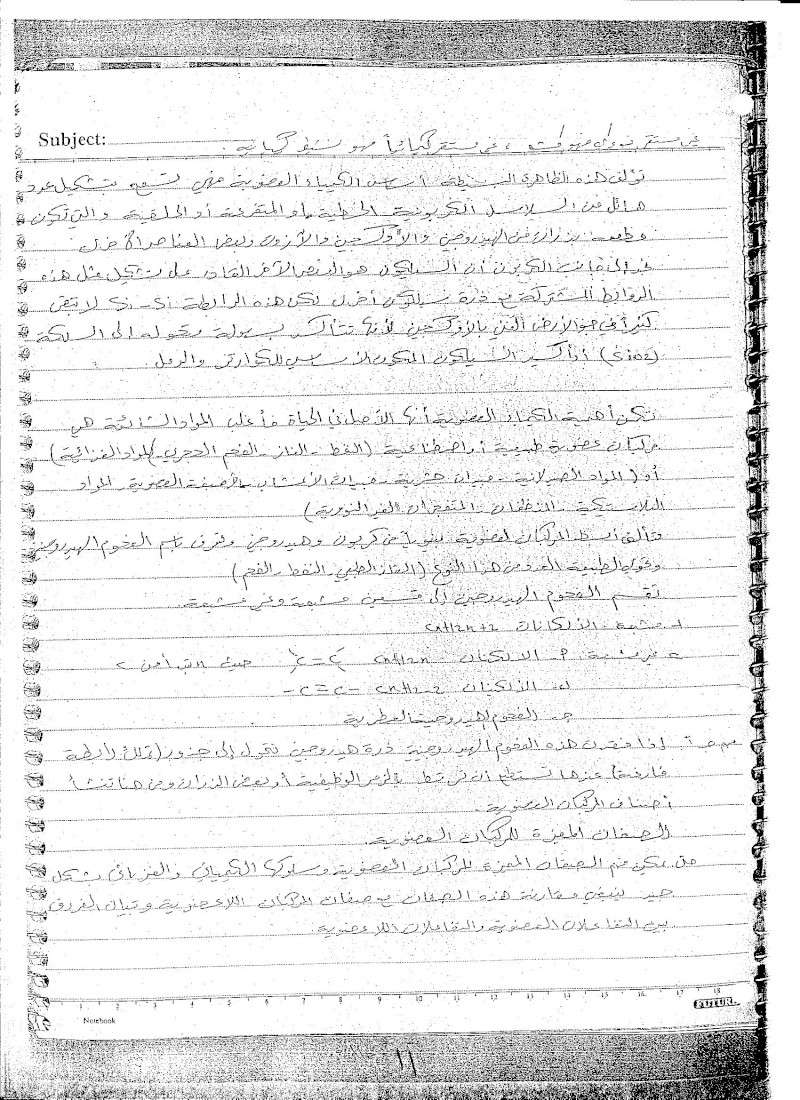 Subject:
تؤلف هذه الظاهرة البسيطة أساس الكيمياء العضوية فهي تسمح بتشكيل عدد
هائل من السلاسل الكربونية الخطية أو المتفرعة أو الحلقية والتي تكون
مطعمة بذرات من الهيدروجين والأوكسجين والآزوت وبعض العناصر الأخرى
الكربون أن السيليكون هو العنصر الآخر القادر على تشكيل مثل هذه
الروابط المشتركة مع ذرة سيليكون أخرى لكن هذه الرابطة Si-Si لا تبقى
كثيراً في جو الأرض الغني بالأوكسجين لأنها تتأكسد بسهولة متحولة إلى السلكة
(SiO2) أو أكسيد السيليكون المكون الأساسي للكوارتز والرمل
تكمن أهمية الكيمياء العضوية أنها الأصل في الحياة فأغلب المواد الشائعة هي
مركبات عضوية طبيعية أو اصطناعية (النفط - الغاز - الفحم الحجري - المواد الغذائية)
أو (المواد الصيدلانية - مبيدات حشرية - مبيدات الأعشاب - الأصبغة العضوية - المواد
البلاستيكية - المنظفات - المتفجرات الغير النووية)
وتتألف أبسط المركبات العضوية من كربون وهيدروجين وتعرف باسم الفحوم الهيدروجينية
وتحوي الطبيعة العديد من هذا النوع (الغاز الطبيعي - النفط - الفحم)
تقسم الفحوم الهيدروجينية إلى قسمين مشبعة وغير مشبعة.
١- مشبعة - الألكانات CnH2n+2
٢- غير مشبعة P- الألكنات CnH2n C=C حيث
ب- الألكينات CnH2n-2 -C≡C-
ج- الفحوم الهيدروجينية العطرية
إذا فقدت هذه الفحوم الهيدروجينية ذرة هيدروجين تتحول إلى جذور (تملك رابطة
فارغة) عندها تستطيع أن ترتبط بالزمر الوظيفية أو بعض الذرات ومن هنا تنشأ
أصناف المركبات العضوية.
الصفات المميزة للمركبات العضوية.
حتى يمكن فهم الصفات المميزة للمركبات العضوية وسلوكها الكيميائي والفيزيائي بشكل
جيد ينبغي مقارنة هذه الصفات مع صفات المركبات اللاعضوية وتبيان الفروق
بين التفاعلات العضوية والتفاعلات اللاعضوية.
1 2 3 4 5 6 7 8 9 10 11 12 13 14 15 16 17 18
Notebook
١١